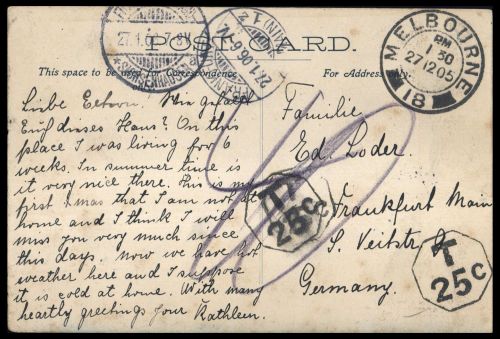 POST CARD.
This space to be used for Correspondence
For Address only.
MELBOURNE
PM
1 30
27 12 05
18
27.1.06.6-7N.
27.1.
Liebe Eltern. Wie gefällt
Euch dieses Haus? On this
place I was living for 6
weeks. In summer time is
it very nice there. This is my
first Xmas that I am not at
home and I think I will
miss you very much since
this days. Now we have hot
weather here and I suppose
it is cold at home. With many
heartly greetings your Kathlein.
Familie
Ed. Loder.
Frankfurt Main
S.
Germany.
T
25c
T
25c